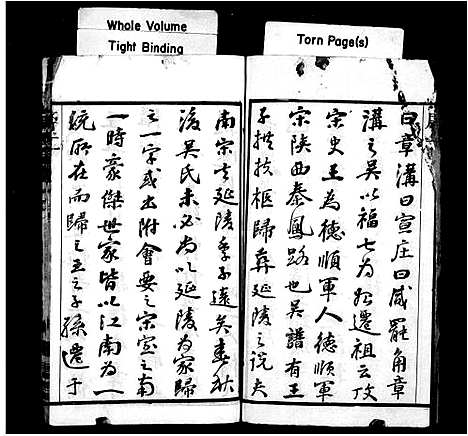 Whole Volume
Tight Binding
Torn Page(s)
曰章溝曰宣庄曰咸罷角章
溝之吳以福七為始遷祖云攷
宋史王為德順軍人德順軍
宋陝西秦鳳路也吳譜有王
子扶柩歸葬延陵之說夫
南宋去延陵季子遠矣春秋
後吳氏未必尚以延陵為家歸
之一字或出附會要之宋室之南
一時豪傑世家皆以江南為一
統所在而歸之王之子孫遷于